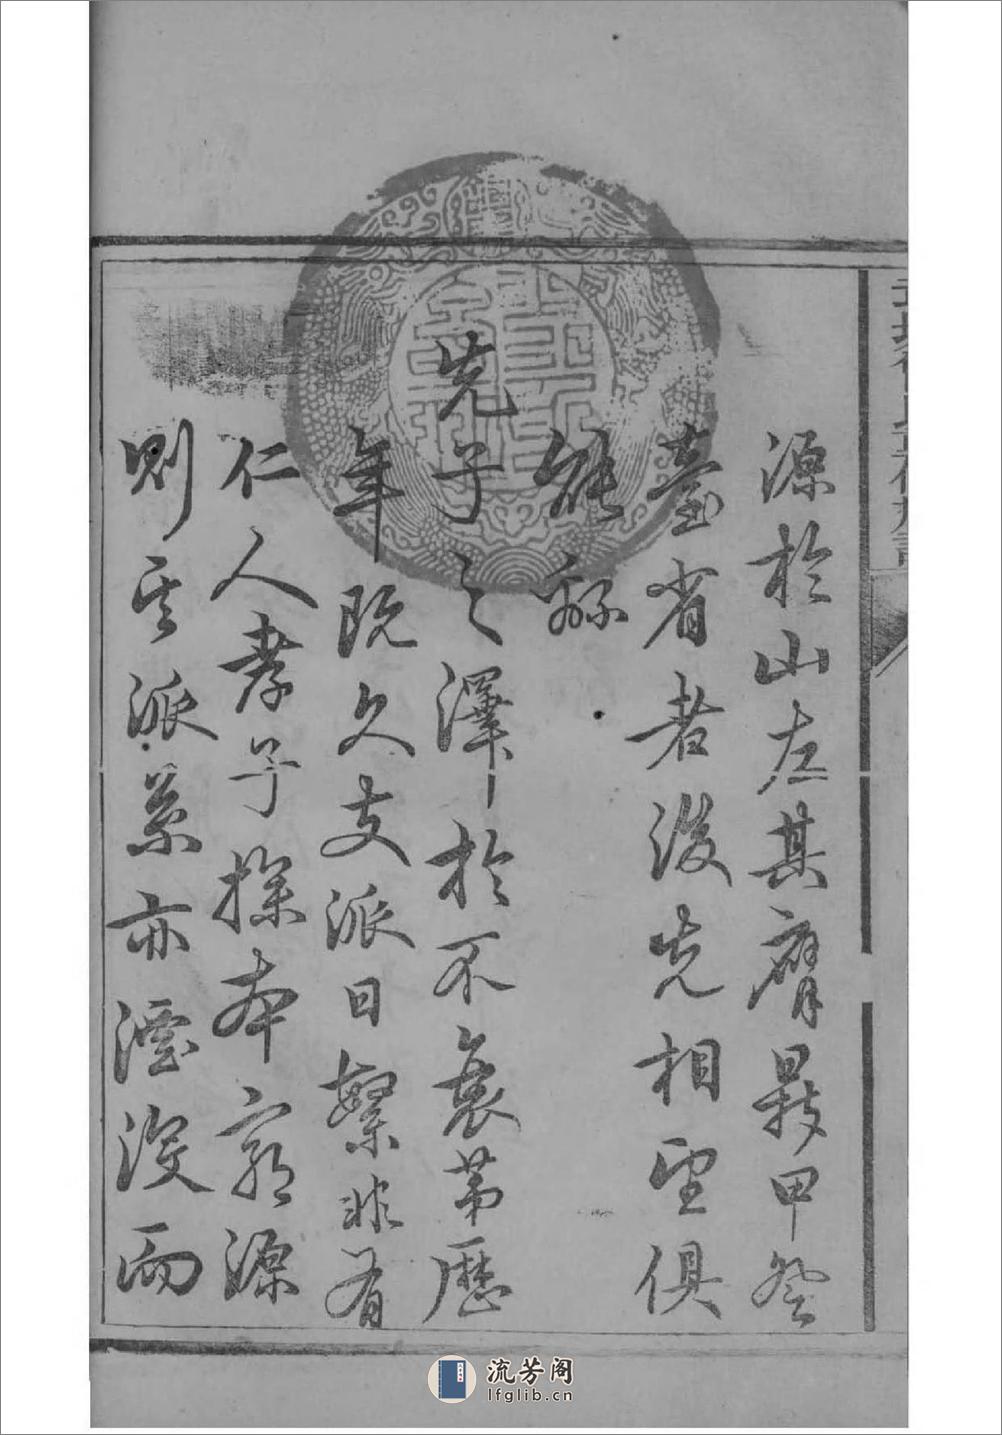 源於山左其膺甲登
臺省者後先相望俱
能綿
先子之澤於不衰第歷
年既久支派日繁非有
仁人孝子探本窮源
則其派系亦湮沒而
流芳阁
lfglib.cn